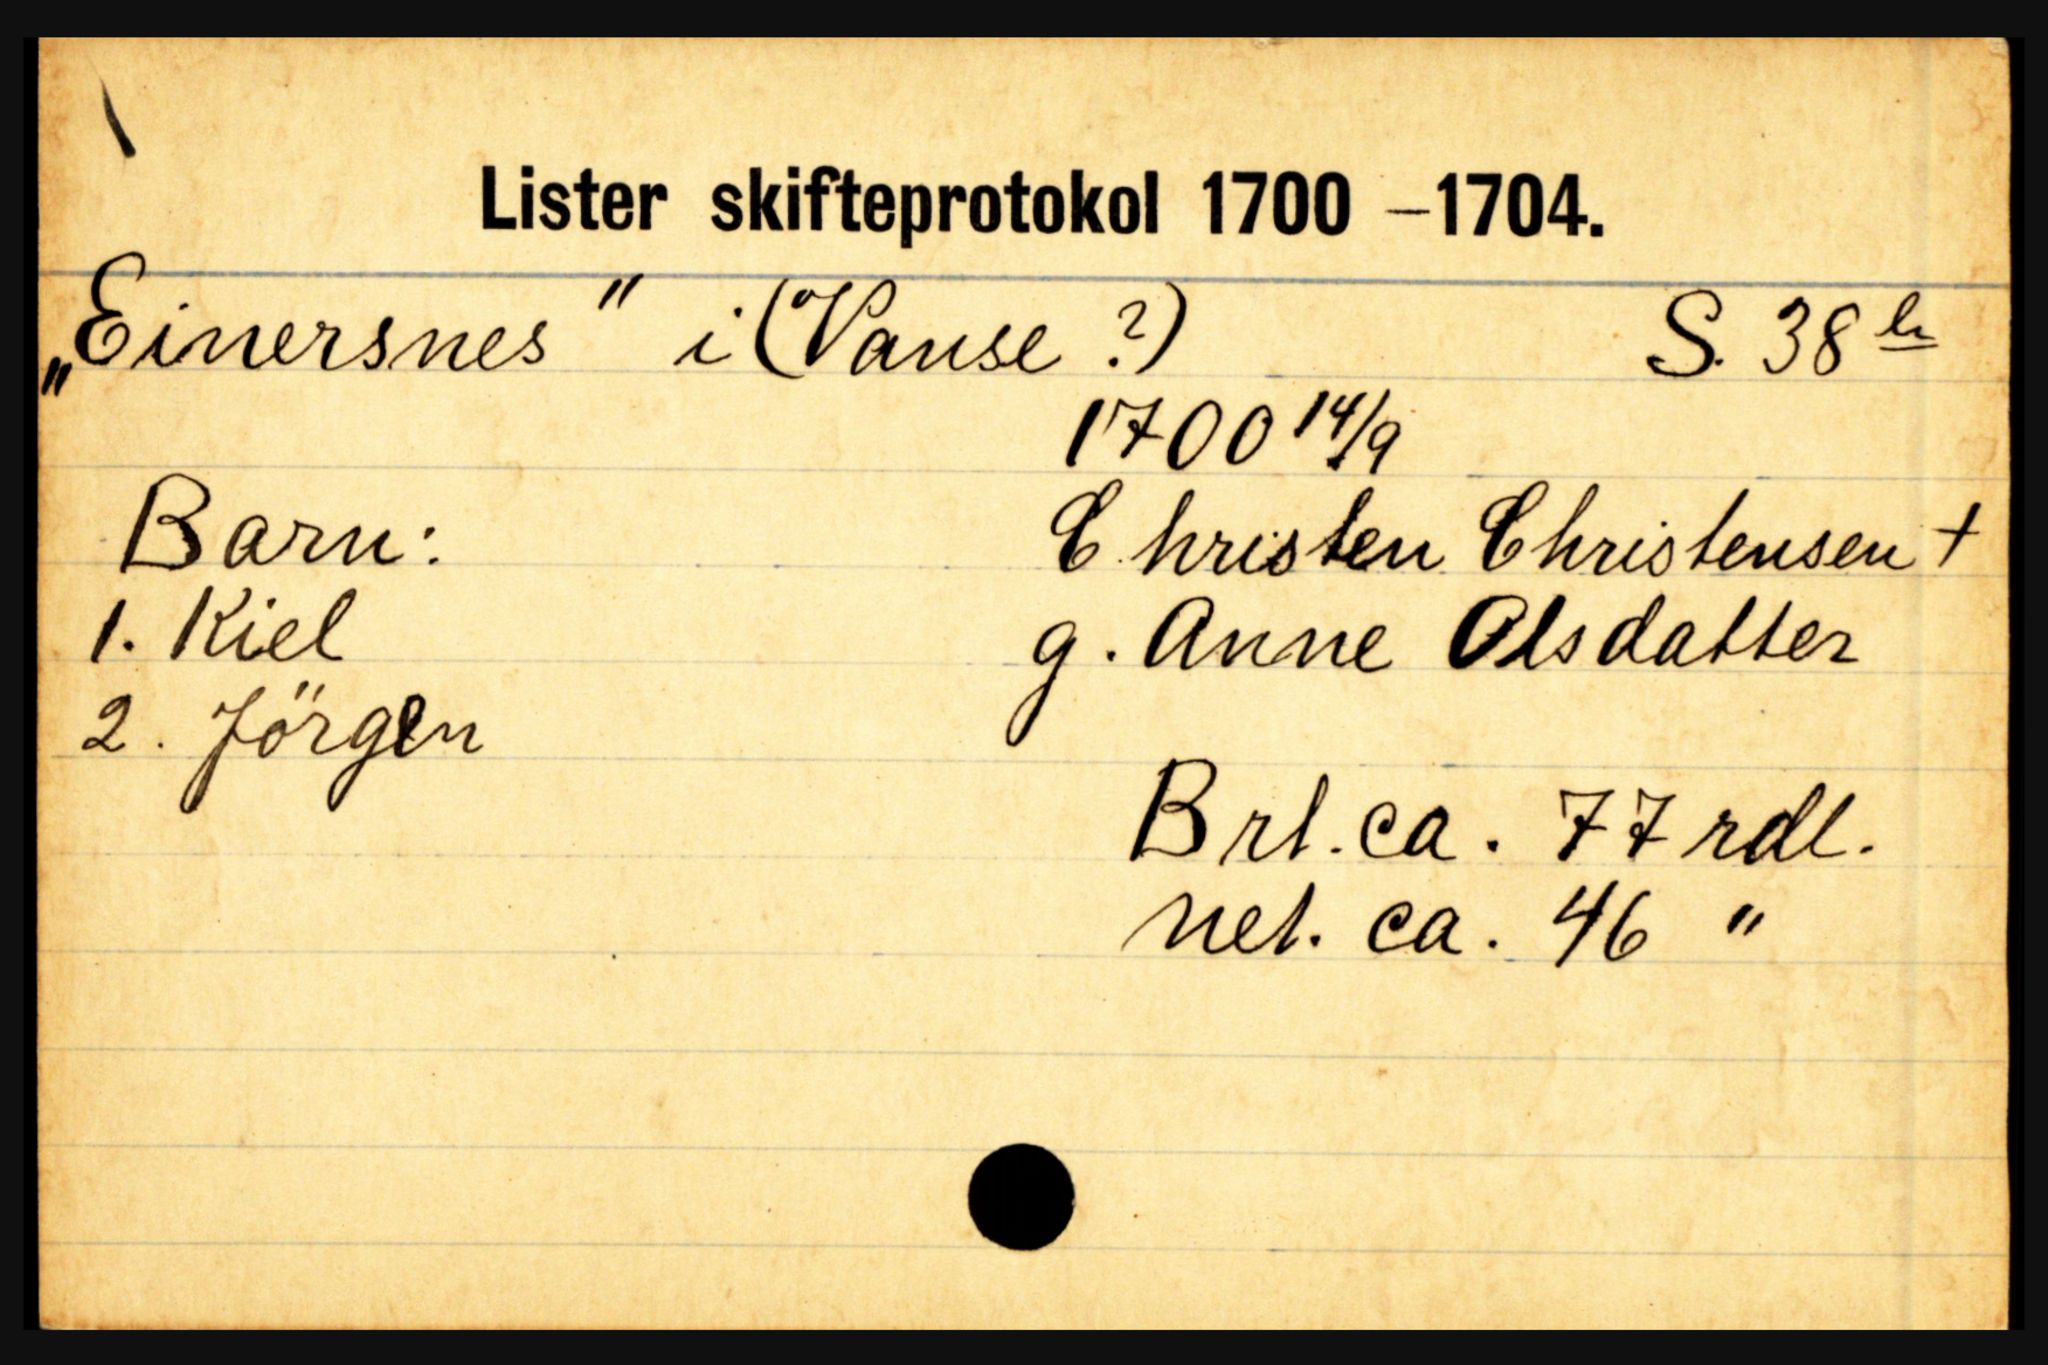 Lister skifteprotokol 1700 –1704.
„Einersnes" i (Vanse ?) S. 38
1700 14/9
Barn: Christen Christensen +
1. Kiel g. Anne Olsdatter
2. Jörgen
Brt. ca. 77 rdl.
net. ca. 46 "